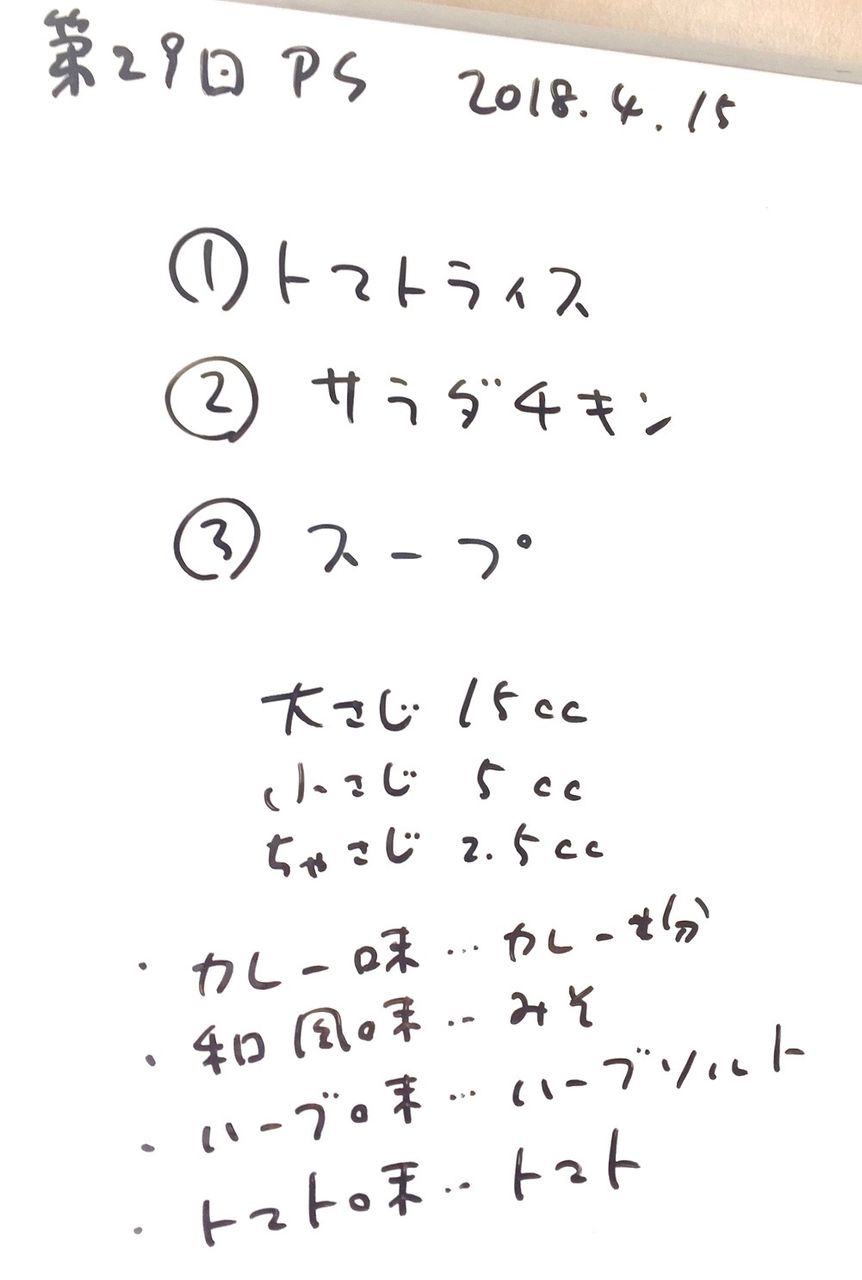 第29回 PS 2018.4.15
① トマトライス
② サラダチキン
③ スープ
大さじ 15cc
小さじ 5cc
ちゃさじ 2.5cc
・カレー味…カレー粉
・和風味…みそ
・ハーブ味…ハーブソルト
・トマト味…トマト